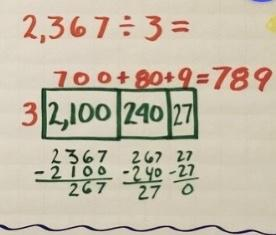 2,367 ÷ 3 =
700 + 80 + 9 = 789
3 2,100 240 27
2367 267 27
- 2100 - 240 - 27
267 27 0